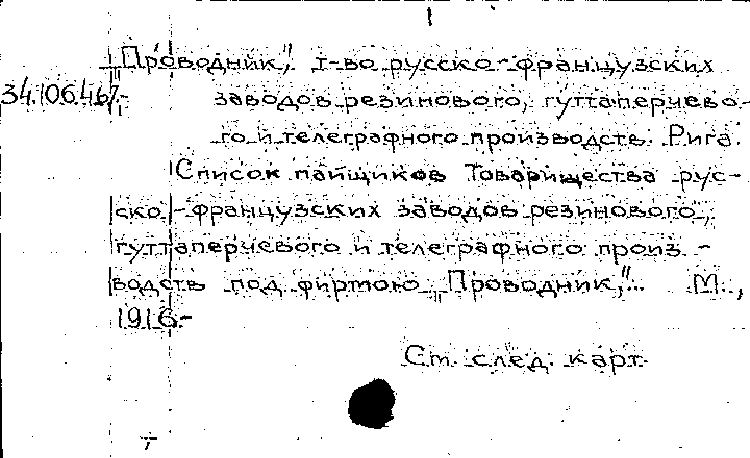 1
„Проводник", т-во русско-французских
34.106.467.- заводов резинового, гуттаперчево-
го и телеграфного производств. Рига.
Список пайщиков Товарищества рус-
ско-французских заводов резинового,
гуттаперчевого и телеграфного произ-
водств под фирмою „Проводник"... М.,
1916.-
См. след. карт.
т